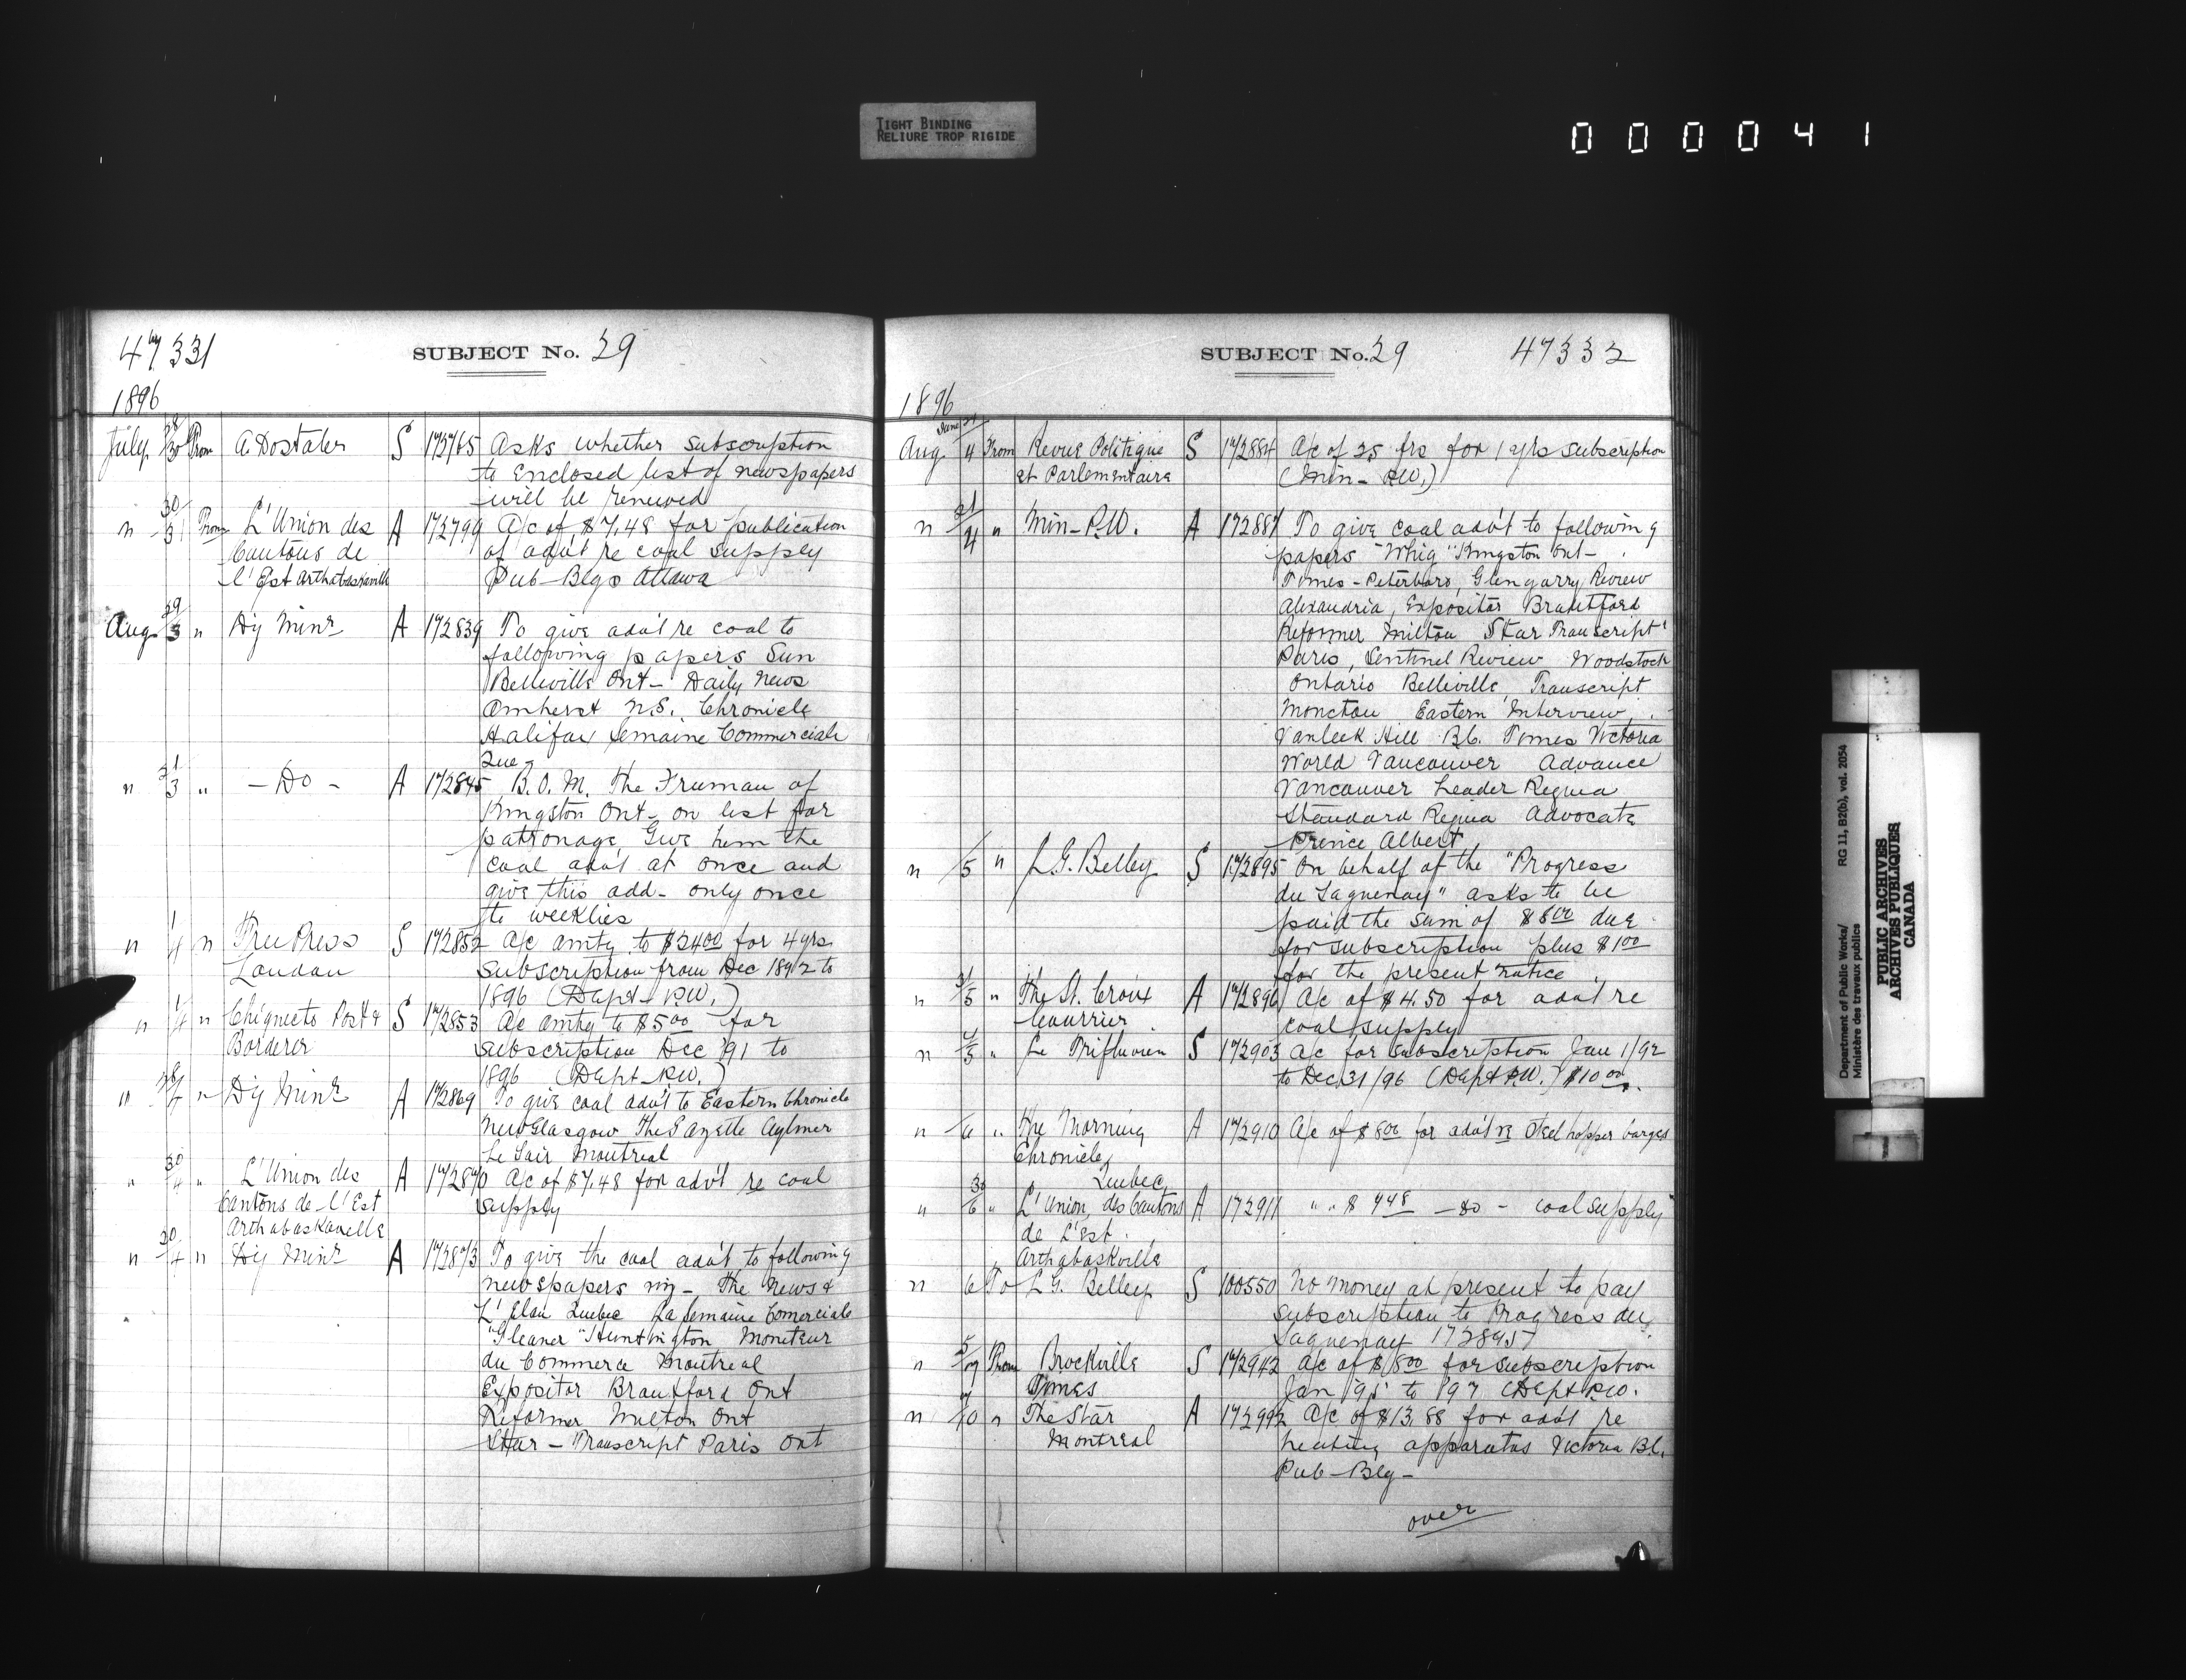 TIGHT BINDING
RELIURE TROP RIGIDE
000041
47331
SUBJECT No. 29
1896
July 28/30 From A. Dostaler S 172765 Asks whether subscription
to enclosed list of newspapers
will be renewed
" 30/31 From L'Union des A 172799 A/c of $7.48 for publication
Cantons de of adv't re coal supply
l'Est Arthabaskaville Pub-Blgs Ottawa
Aug 29/3 " Dy Minr A 172839 To give adv't re coal to
following papers Sun
Belleville Ont- Daily News
Amherst N.S. Chronicle
Halifax Semaine Commerciale
Que-
" 31/3 " - Do - A 172845 B.O.M. The Freeman of
Kingston Ont- on list for
patronage. Give him the
coal adv't at once and
give this add- only once
to weeklies
" 1/4 " Free Press S 172852 A/c amtg to $24.00 for 4 yrs
London subscription from Dec 1892 to
1896 (Dept-P.W.)
" 1/4 " Chignecto Post & S 172853 A/c amtg to $5.00 for
Borderer subscription Dec '91 to
1896 (Dept-P.W.)
" 28/4 " Dy Minr A 172869 To give coal adv't to Eastern Chronicle
New Glasgow The Gazette Aylmer
Le Soir Montreal
" 30/4 " L'Union des A 172870 A/c of $7.48 for adv't re coal
Cantons de-l'Est supply
Arthabaskaville
" 30/4 " Dy Minr A 172873 To give the coal adv't to following
newspapers viz- The News &
L'Elan Quebec La Semaine Comerciale
"Gleaner" Huntington Moniteur
du Commerce Montreal
Expositor Brantford Ont
Reformer Milton Ont
Star-Transcript Paris Ont
SUBJECT No. 29 47332
1896
Aug June 24/4 From Revue Politique S 172884 A/c of 25 frs for 1 yrs subscription
et Parlementaire (Min-P.W.)
" 31/4 " Min-P.W. A 172887 To give coal adv't to following
papers "Whig" Kingston Ont-
Times-Peterboro, Glengarry Review
Alexandria, Expositor Brantford
Reformer Milton Star Transcript
Paris, Sentinel Review Woodstock
Ontario Belleville, Transcript
Moncton Eastern Interview,
Vanleek Hill B.C. Times Victoria
World Vancouver Advance
Vancouver Leader Regina
Standard Regina Advocate
Prince Albert
" /5 " L.G. Belley S 172895 On behalf of the "Progress
du Saguenay" asks to be
paid the sum of $8.00 due
for subscription plus $1.00
for the present notice
" 31/5 " The St. Croix A 172896 A/c of $4.50 for adv't re
Courrier coal supply
" 4/5 " Le Trifluvien S 172903 A/c for subscription Jan 1/92
to Dec 31/96 (Dept P.W.) $10.00.
" /6 " The Morning A 172910 A/c of $8.00 for adv't re Steel hopper barges
Chronicle,
Quebec,
" 30/6 " L'Union des Cantons A 172911 " " $ 7.48 - do - coal supply
de L'Est.
Arthabaskville
" 6 To L.G. Belley S 100550 No money at present to pay
subscription to Progress du
Saguenay 172895
" 5/7 From Brockville S 172942 A/c of $8.00 for subscription
Times Jan '95 to '97 (Dept P.W.
" 7/10 " The Star A 172992 A/c of $13.88 for adv't re
Montreal heating apparatus Victoria B.C.
Pub-Blg-
over
Department of Public Works/ RG 11, B2(b), vol. 2054
Ministère des travaux publics
PUBLIC ARCHIVES
ARCHIVES PUBLIQUES
CANADA